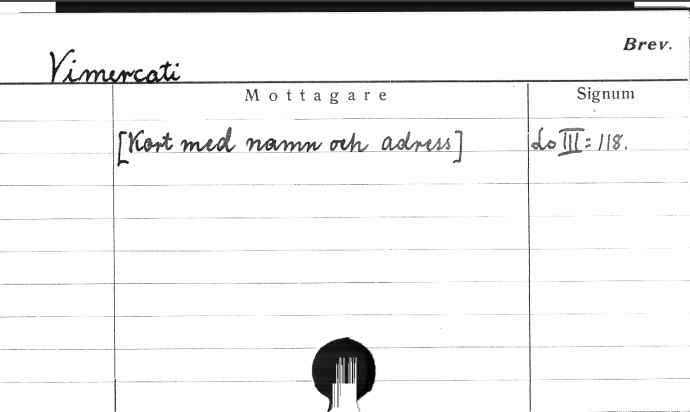 Brev.
Vimercati
Mottagare Signum
[Kort med namn och adress] Lo III = 118.